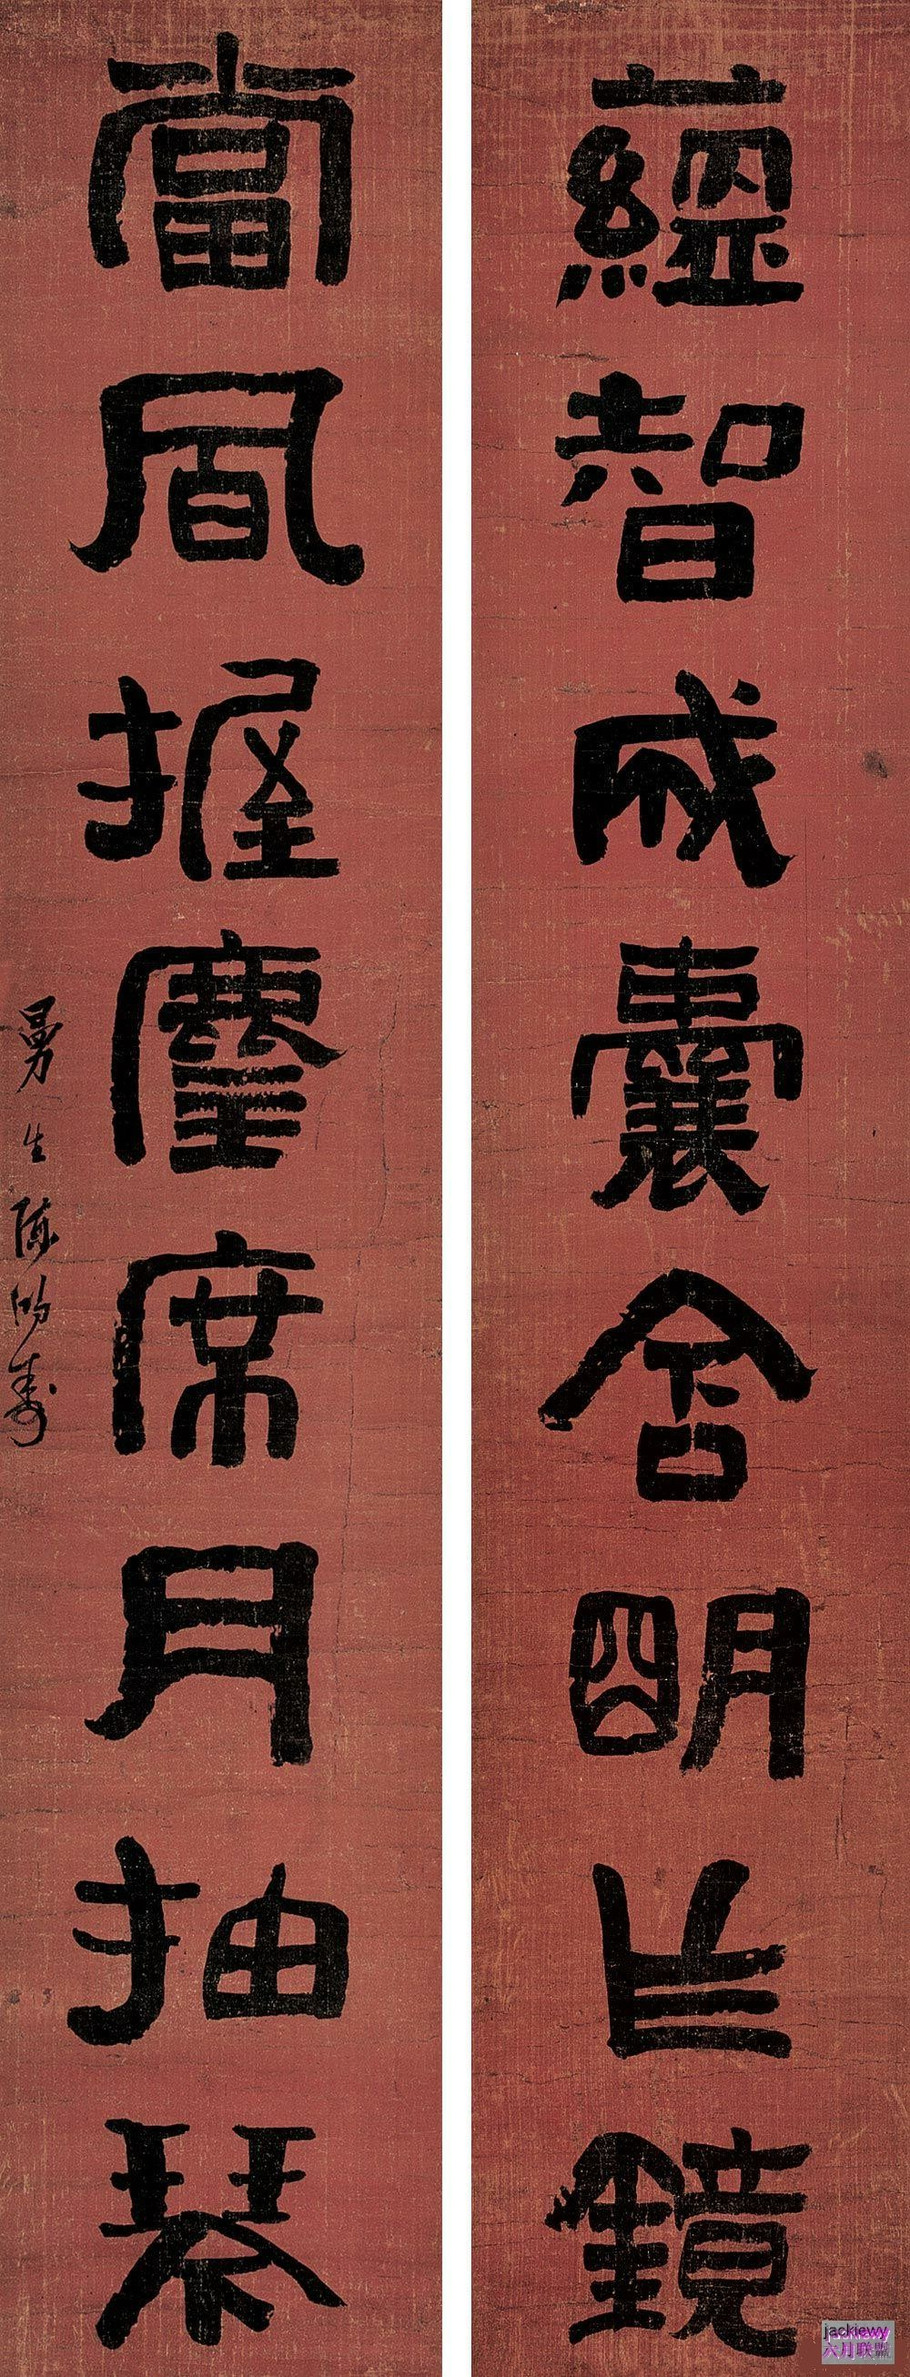 蕴智成囊含明作镜
當風握麈席月抽琴
曼生陳鴻壽
jackiewy
六月联盟